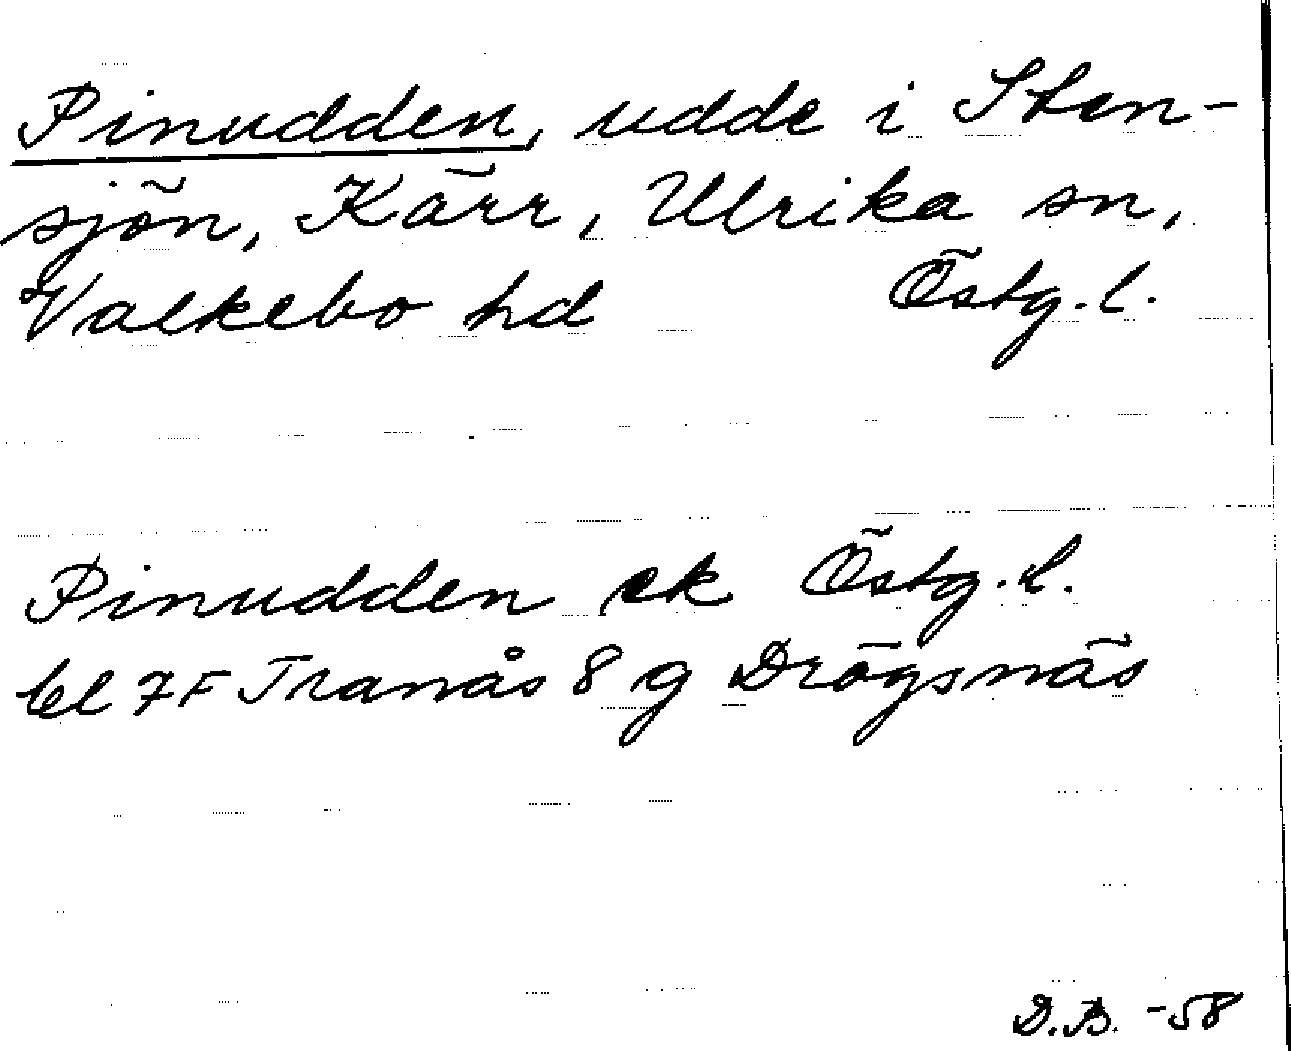 Pinudden, udde i Sten-
sjön, Kärr, Ulrika sn,
Valkebo hd Östg. l.
Pinudden ek Östg. l.
bl 7F Tranås 8 g Drögsnäs
D.B. -58